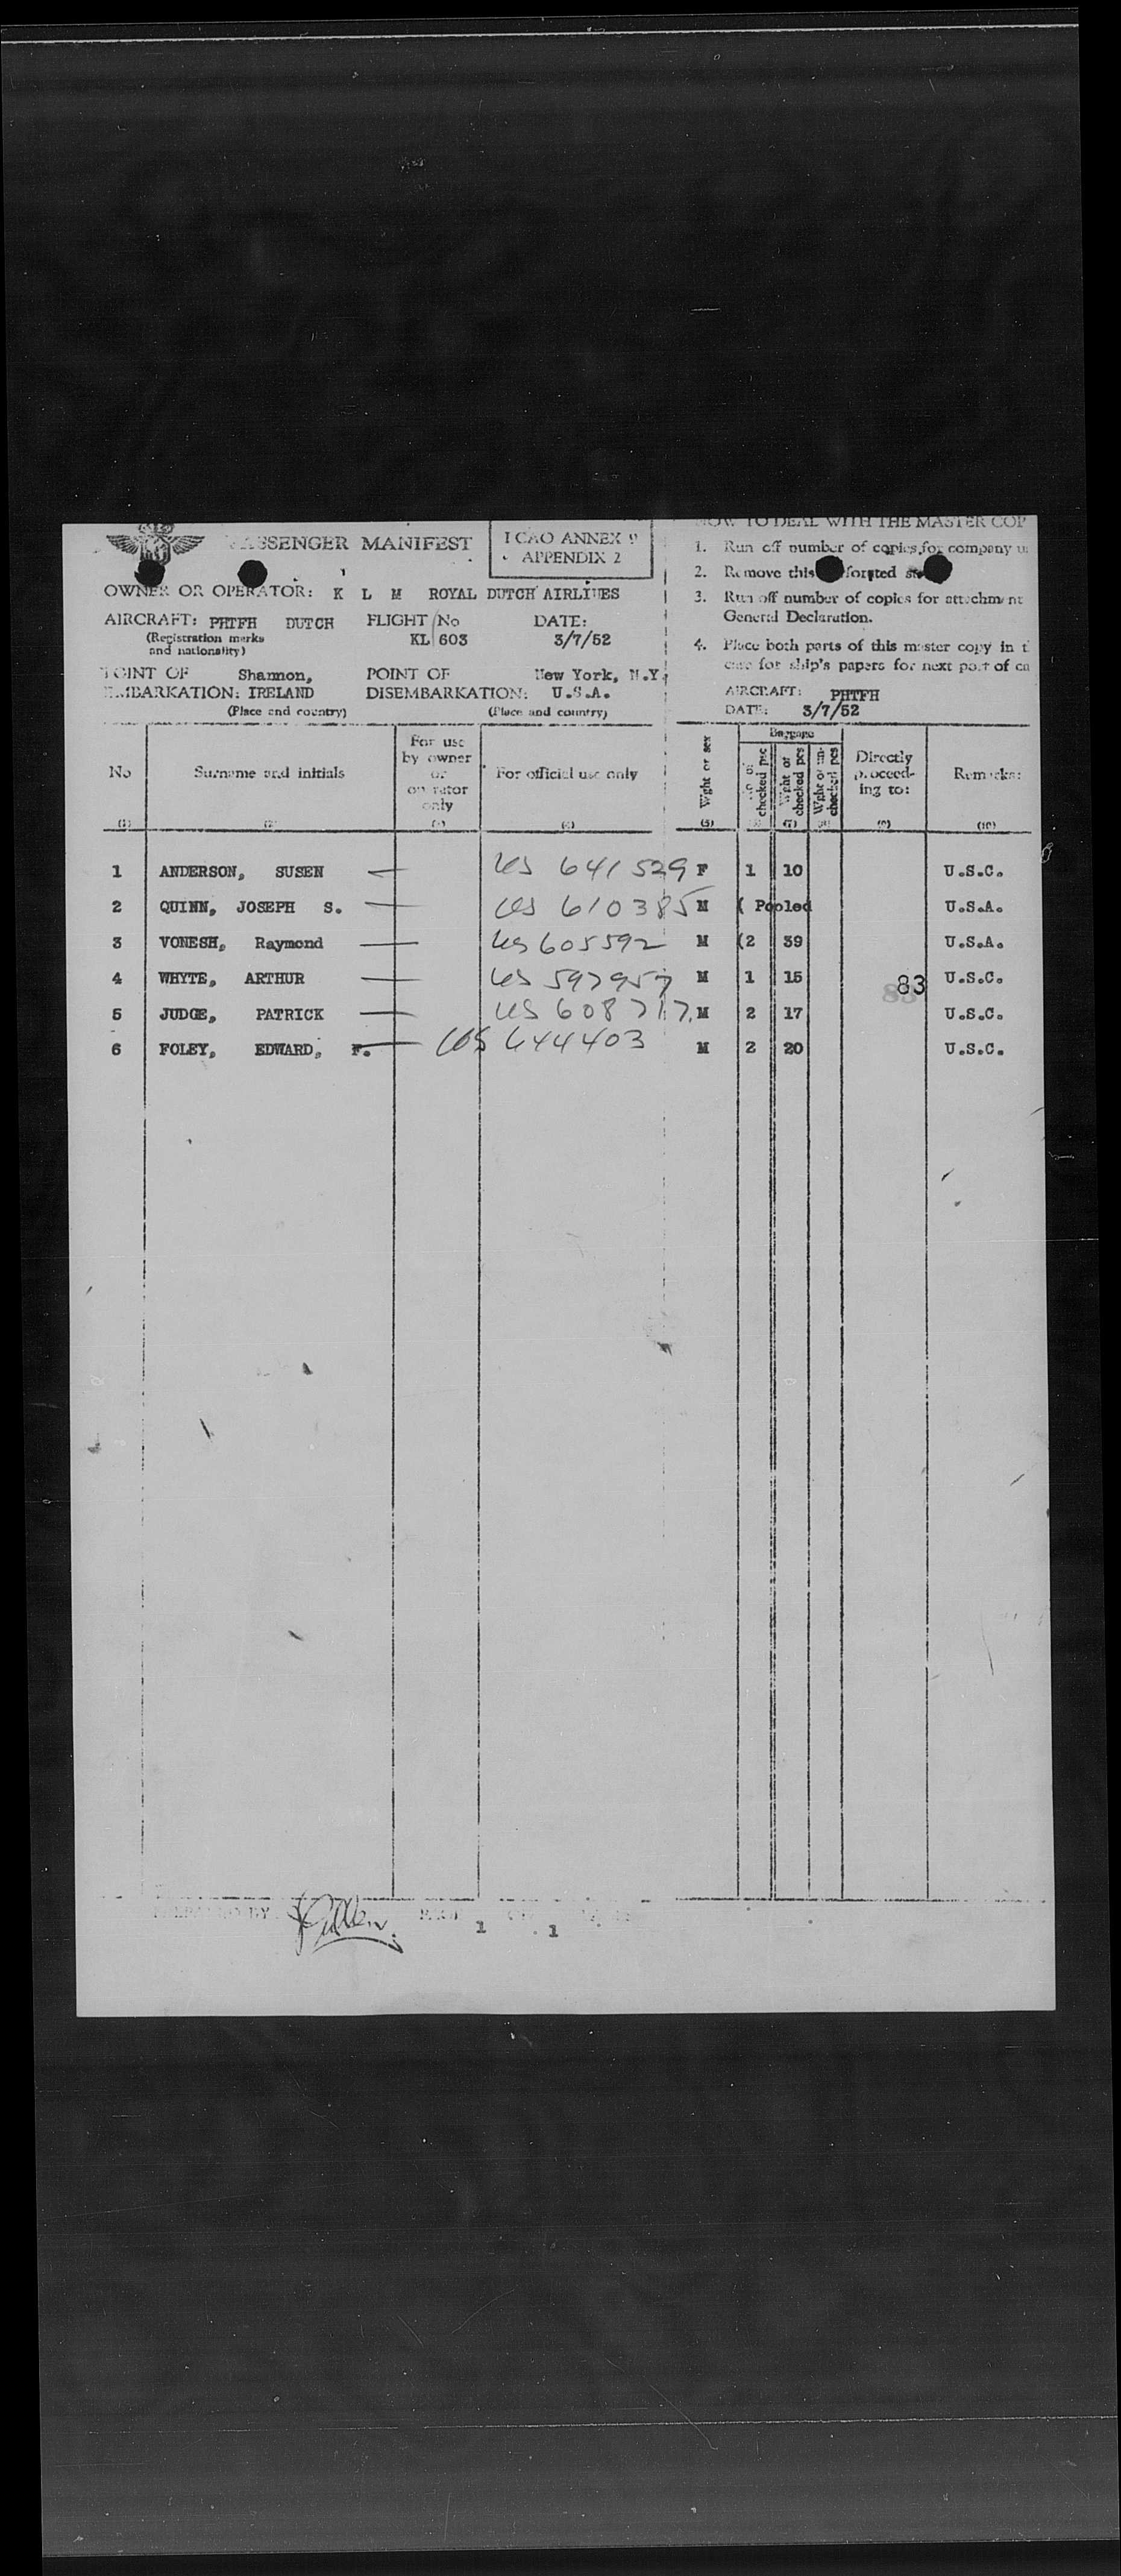 PASSENGER MANIFEST
I CAO ANNEX 9
APPENDIX 2
OWNER OR OPERATOR: K L M ROYAL DUTCH AIRLINES
AIRCRAFT: PHTFH DUTCH FLIGHT No DATE:
(Registration marks and nationality) KL 603 3/7/52
POINT OF Shannon, POINT OF New York, N.Y.
EMBARKATION: IRELAND DISEMBARKATION: U.S.A.
(Place and country) (Place and country)
HOW TO DEAL WITH THE MASTER COP
1. Run off number of copies for company u
2. Remove this
3. Run off number of copies for attachment
General Declaration.
4. Place both parts of this master copy in t
case for ship's papers for next port of ca
AIRCRAFT: PHTFH
DATE: 3/7/52
No Surname and initials For use by owner or operator only For official use only Wght or sex Baggage No of checked pcs Wght of checked pcs Wght of un-checked pcs Directly proceed-ing to: Remarks:
(1) (2) (3) (4) (5) (6) (7) (8) (9) (10)
1 ANDERSON, SUSEN — US 641529 F 1 10 U.S.C.
2 QUINN, JOSEPH S. — US 610385 M ( Pooled U.S.A.
3 VONESH, Raymond — US 605592 M (2 39 U.S.A.
4 WHYTE, ARTHUR — US 597957 M 1 15 U.S.C.
83
5 JUDGE, PATRICK — US 608717. M 2 17 U.S.C.
6 FOLEY, EDWARD, F. — US 644403 M 2 20 U.S.C.
PREPARED BY PAGE 1 OF 1